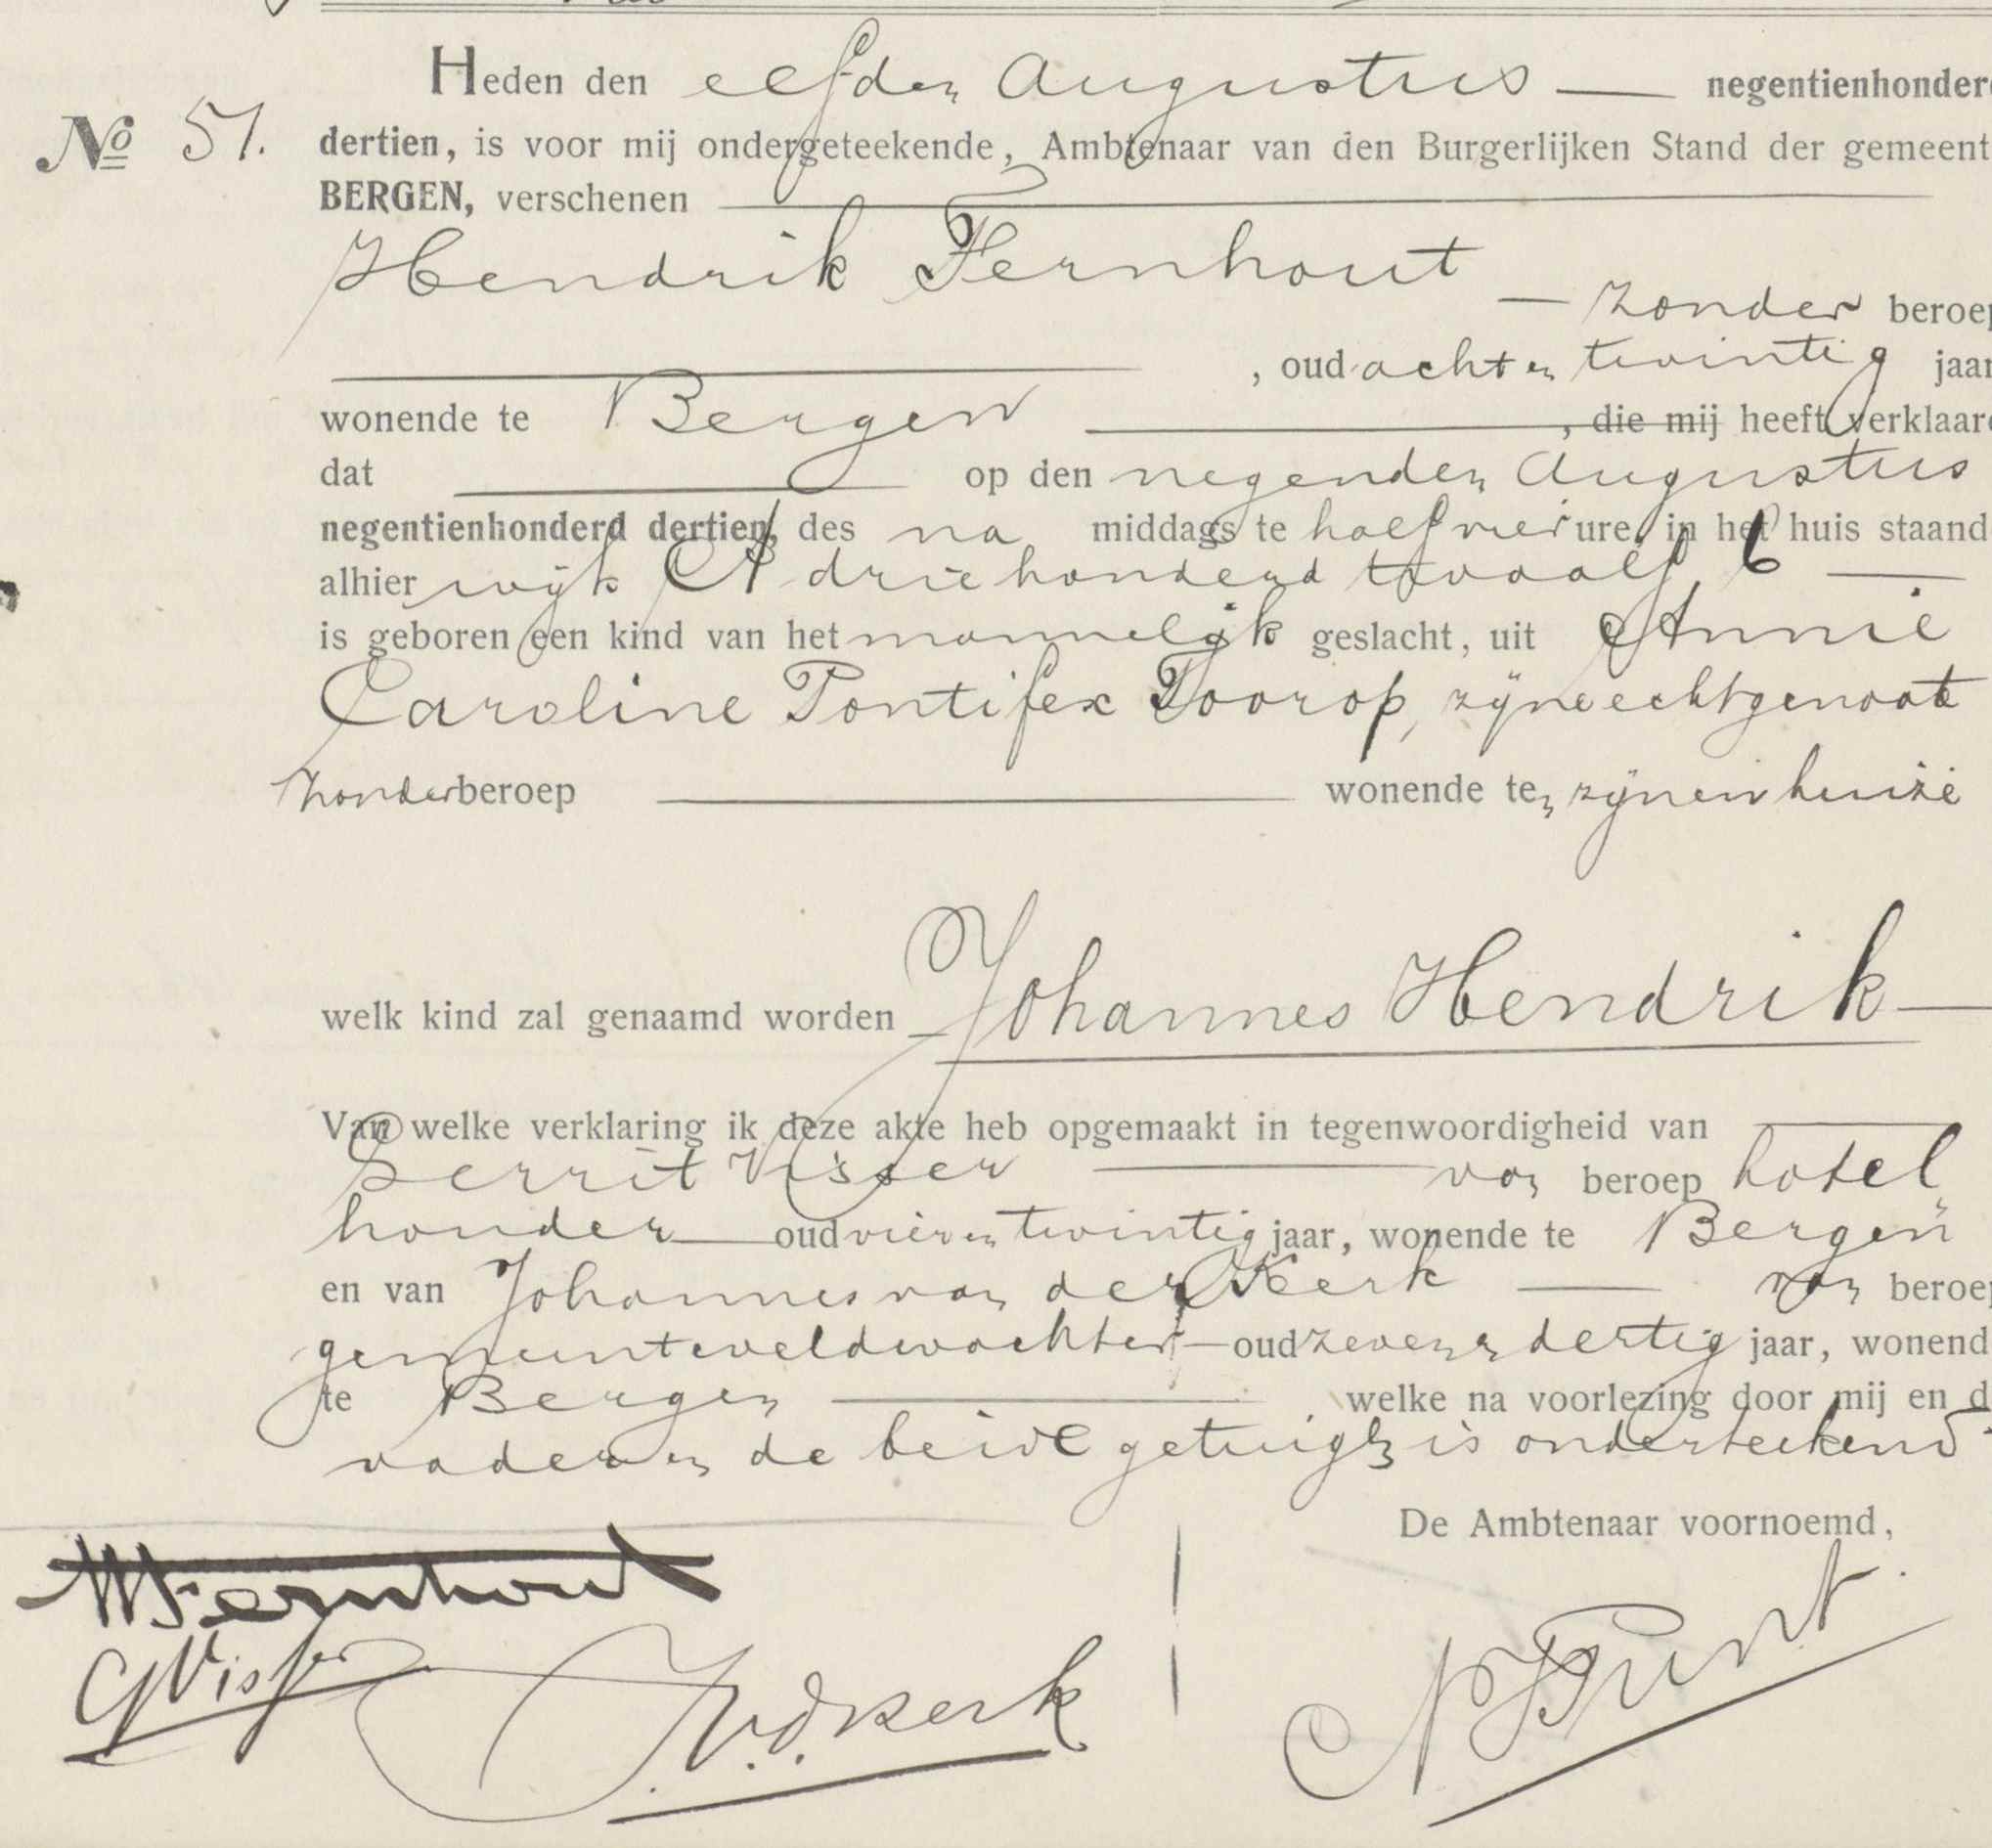 Heden den elfden Augustus — negentienhonderd
No 51. dertien, is voor mij ondergeteekende, Ambtenaar van den Burgerlijken Stand der gemeent
BERGEN, verschenen
Hendrik Fernhout
— zonder beroep
, oud achten twintig jaar
wonende te Bergen , die mij heeft verklaard
dat op den negenden Augustus
negentienhonderd dertien, des na middags te half vier ure, in het huis staand
alhier wijk A driehonderd twaalf b —
is geboren een kind van het mannelijk geslacht, uit Annie
Caroline Pontifex Toorop, zijne echtgenoote
zonder beroep wonende ten zijnen huize
welk kind zal genaamd worden Johannes Hendrik —
Van welke verklaring ik deze akte heb opgemaakt in tegenwoordigheid van
Gerrit Visser van beroep hotel
houder oud vieren twintig jaar, wonende te Bergen
en van Johannes van der Kerk — van beroep
gemeenteveldwachter — oud zevenen dertig jaar, wonend
te Bergen welke na voorlezing door mij en d
vader en de beide getuigen is onderteekend.
De Ambtenaar voornoemd,
Fernhout
G Visser
J. v. d. Kerk